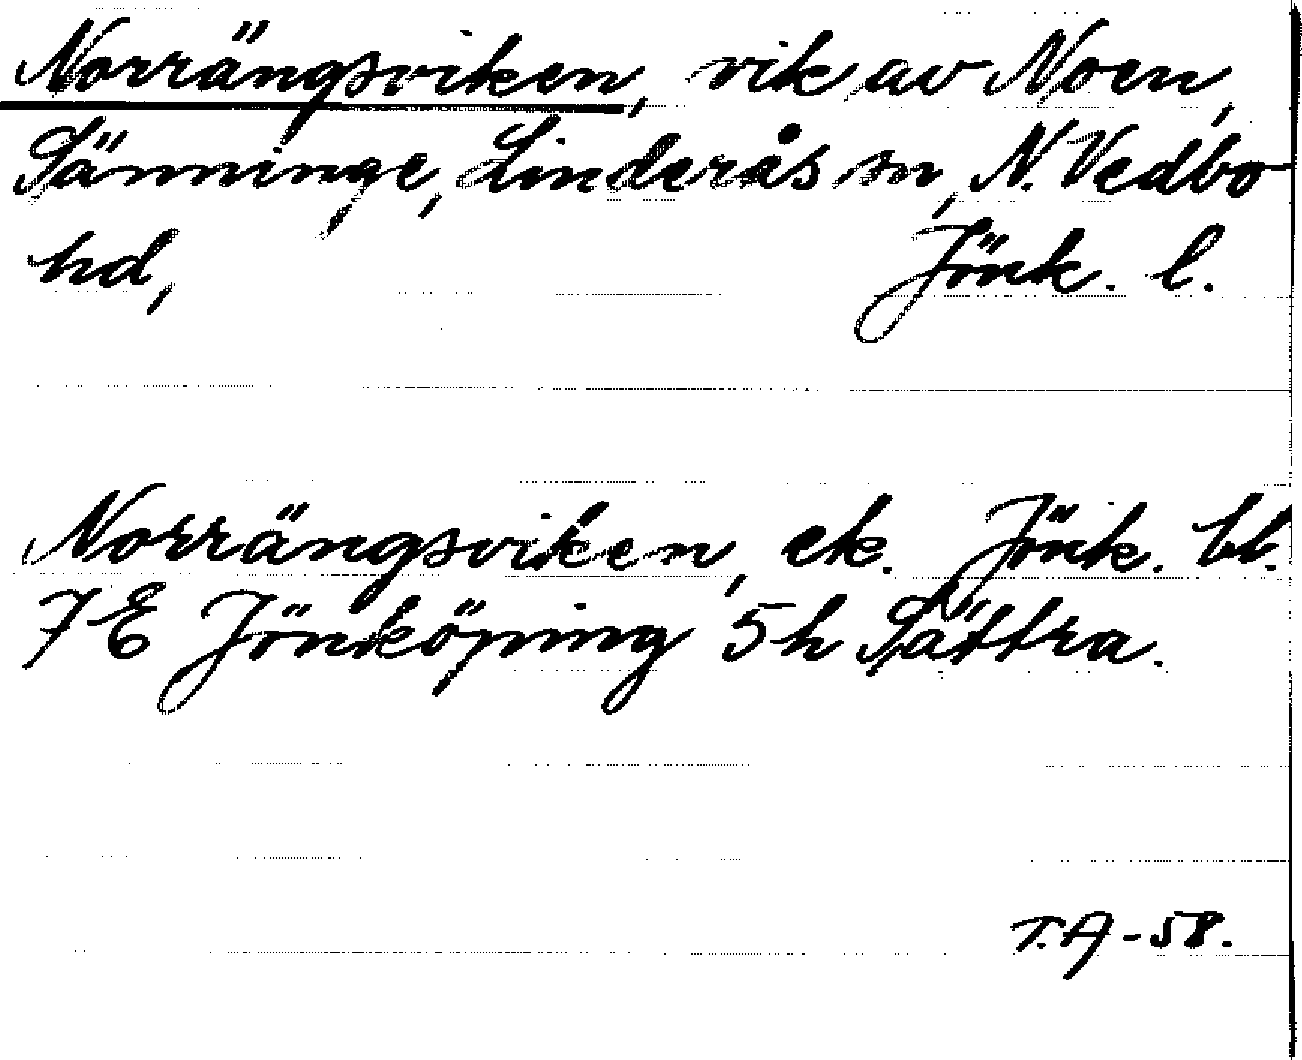 Norrängsviken, vik av Noen,
Sänninge, Linderås sn, N. Vedbo
hd, Jönk. l.
Norrängsviken, ek. Jönk. bl.
7E Jönköping 5h Sättra.
T.A-58.